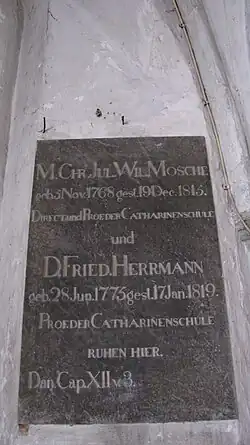 M. CHR. JUL. WIL. MOSCHE
geb. 5 Nov. 1768 gest. 19 Dec. 1815.
DIRECT. und PRO. E DER CATHARINENSCHULE
und
D. FRIED. HERRMANN
geb. 28 Jun. 1775 gest. 17 Jan. 1819.
PRO. E DER CATHARINENSCHULE
RUHEN HIER.
Dan. Cap. XII v. 3.